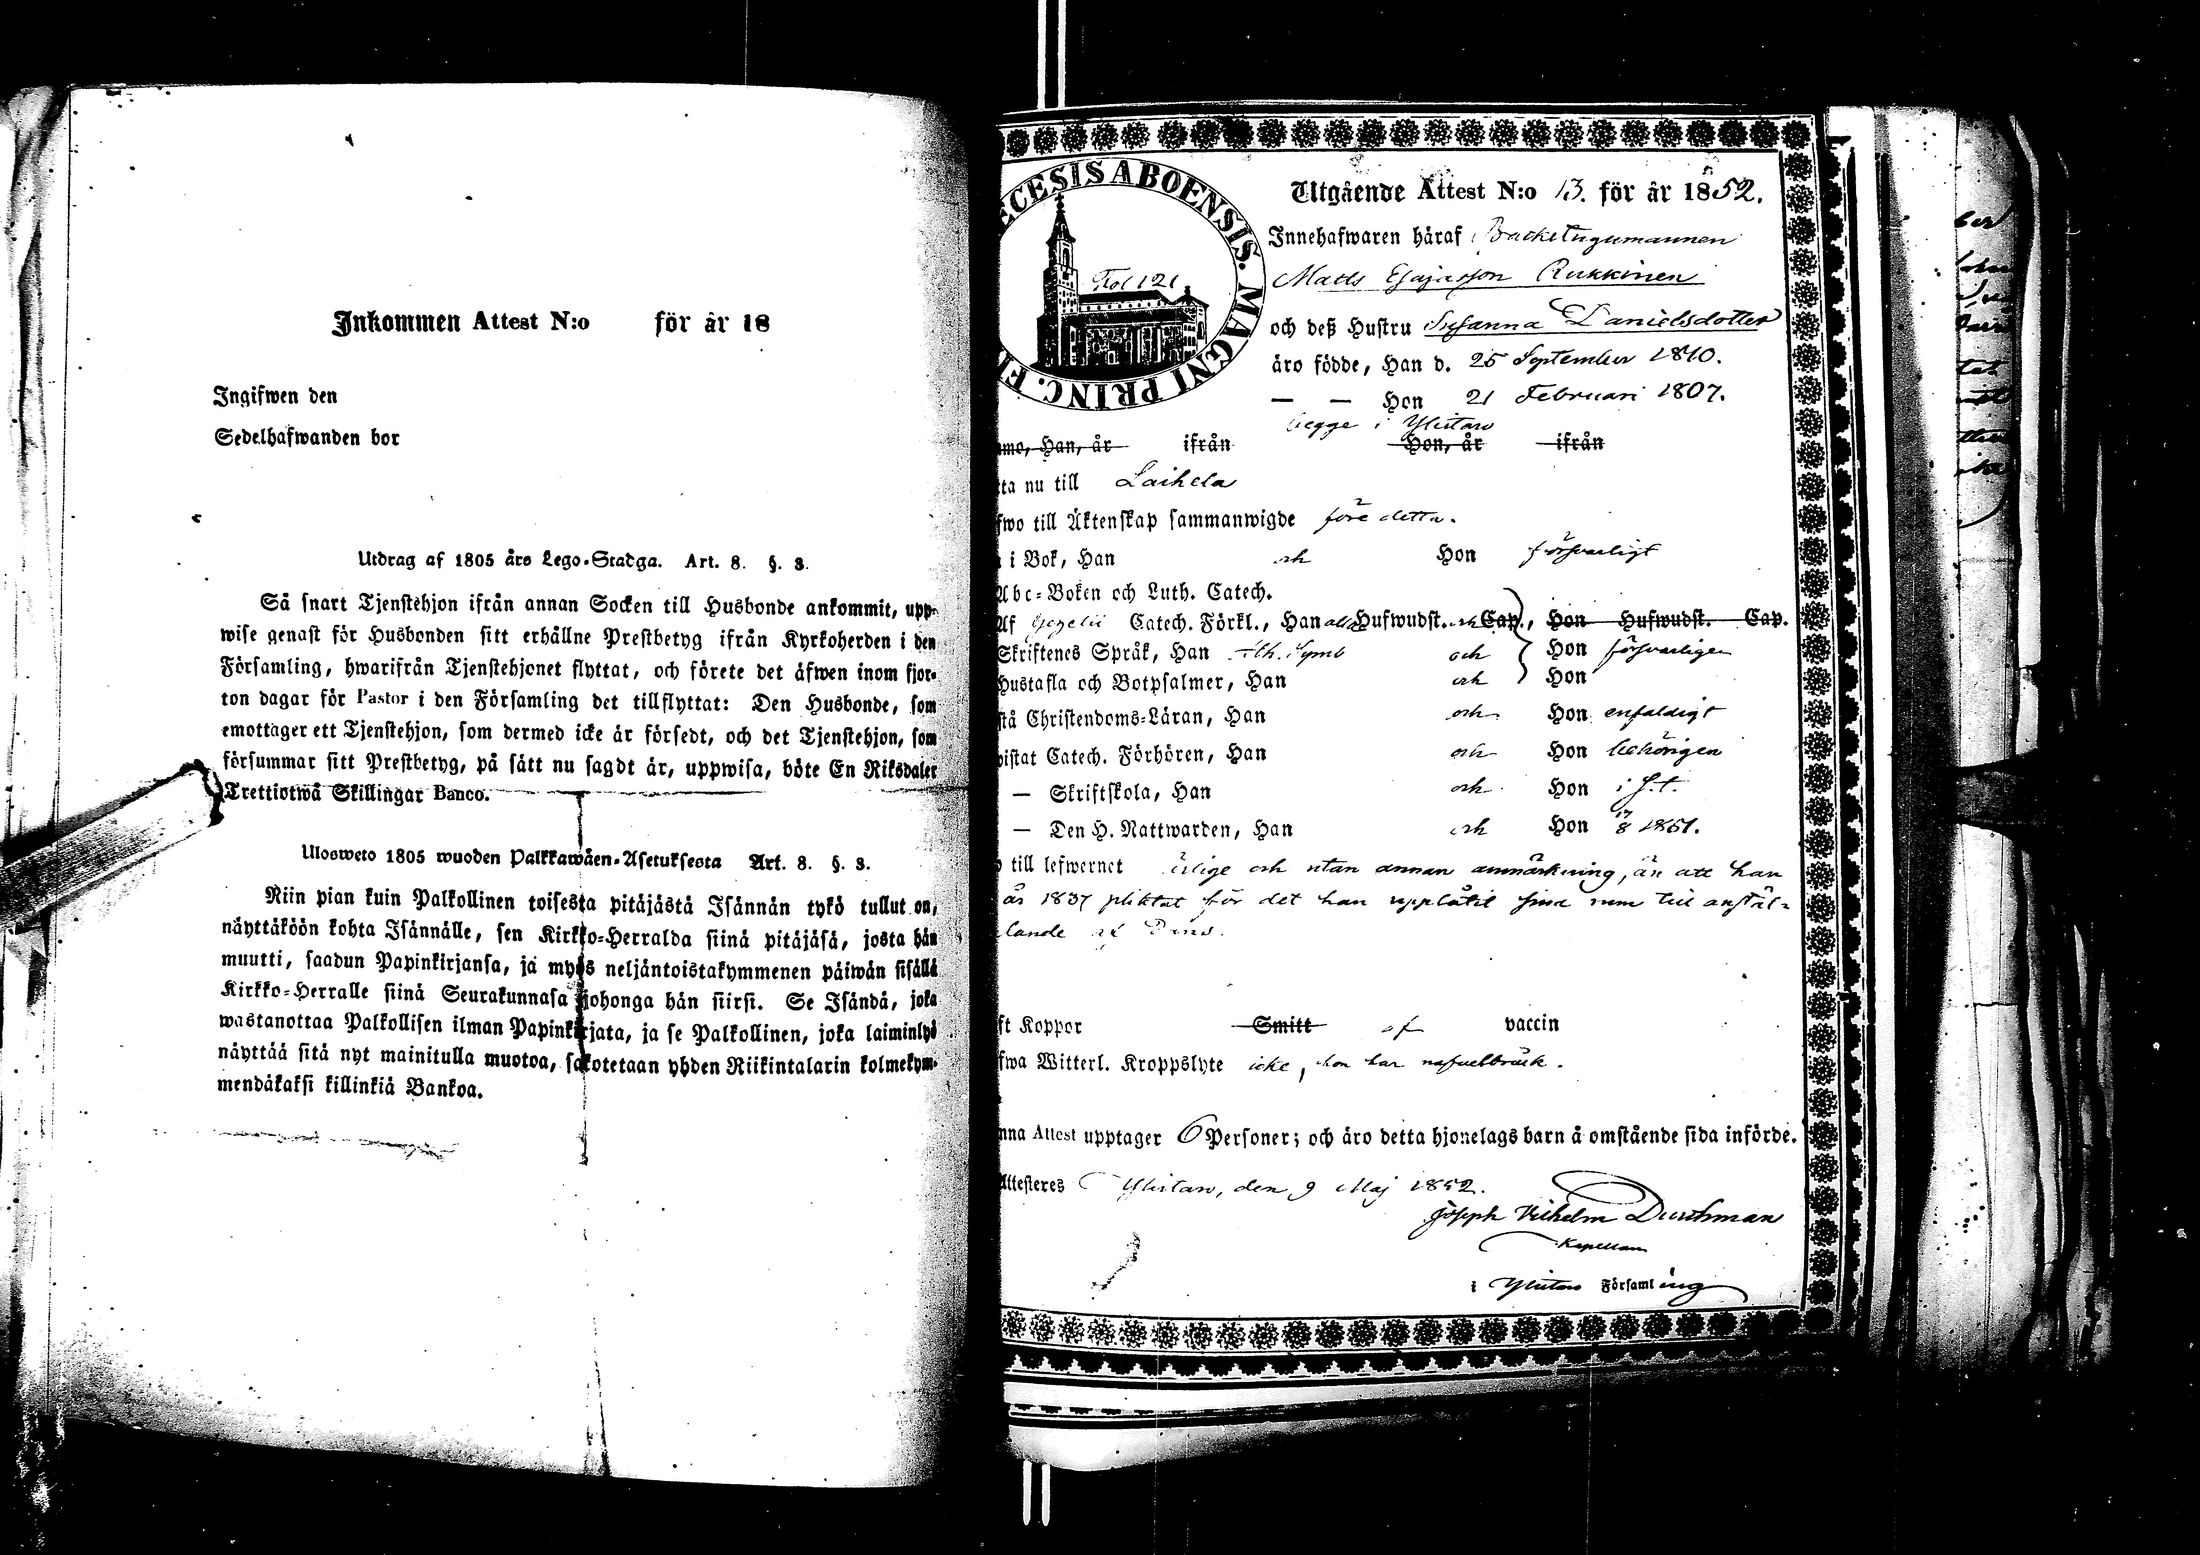 Inkommen Attest N:o för år 18
Ingifwen den
Sedelhafwanden bor
Utdrag af 1805 års Lego-Stadga. Art. 8. §. 3.
Så snart Tjenstehjon ifrån annan Socken till Husbonde ankommit, upp-
wise genast för Husbonden sitt erhållne Prestbetyg ifrån Kyrkoherden i den
Församling, hwarifrån Tjenstehjonet flyttat, och förete det äfwen inom fjor-
ton dagar för Pastor i den Församling det tillflyttat: Den Husbonde, som
emottager ett Tjenstehjon, som dermed icke är försedt, och det Tjenstehjon, som
försummar sitt Prestbetyg, på sätt nu sagdt är, uppwisa, böte En Riksdaler
Trettiotwå Skillingar Banco.
Ulosweto 1805 wuoden Palkkawäen-Asetuksesta Art. 8. §. 3.
Niin pian kuin Palkollinen toisesta pitäjästä Isännän tykö tullut on,
näyttäköön kohta Isännälle, sen Kirkko-Herralda siinä pitäjäsä, josta hän
muutti, saadun Papinkirjansa, ja myös neljäntoistakymmenen päiwän sisällä
Kirkko-Herralle siinä Seurakunnasa johonga hän siirsi. Se Isändä, joka
wastanottaa Palkollisen ilman Papinkirjata, ja se Palkollinen, joka laiminlyö
näyttää sitä nyt mainitulla muotoa, sakotetaan yhden Riikintalarin kolmekym-
mendäkaksi killinkiä Bankoa.
ECESIS ABOENSIS. MAGNI PRINC. FI
Fol 121
Utgående Attest N:o 13. för år 1852.
Innehafwaren häraf Backstugumannen
Matts Esajasson Rukkinen
och deß Hustru Susanna Danielsdotter
äro födde, Han d. 25 September 1810.
— — Hon 21 Februari 1807.
begge i Ylistaro
mo, Han, år ifrån Hon, år ifrån
ta nu till Laihela
fwo till Äktenskap sammanwigde före detta.
i Bok, Han och Hon försvarligt
Abc-Boken och Luth. Catech.
Af Gezelii Catech. Förkl., Han alla Hufwudst. och Cap., Hon Hufwudst. Cap.
Skriftenes Språk, Han Ath. Symb och Hon försvarligen
Hustafla och Botpsalmer, Han och Hon
stå Christendoms-Läran, Han och Hon enfaldigt
wistat Catech. Förhören, Han och Hon behörigen
— Skriftskola, Han och Hon i s. t.
— Den H. Nattwarden, Han och Hon 17/8 1851.
till lefwernet ärlige och utan annan anmärkning, än att han
år 1837 pliktat för det han upplåtit sina rum till anstäl-
lande af Dans.
ft Koppor Smitt af vaccin
fwa Witterl. Kroppslyte icke, hon har nafvelbråck.
nna Attest upptager 6 Personer; och äro detta hjonelags barn å omstående sida införde.
Attesteras Ylistaro, den 9 Maj 1852.
Joseph Vilhelm Durchman
Kapellan
i Ylistaro Församling